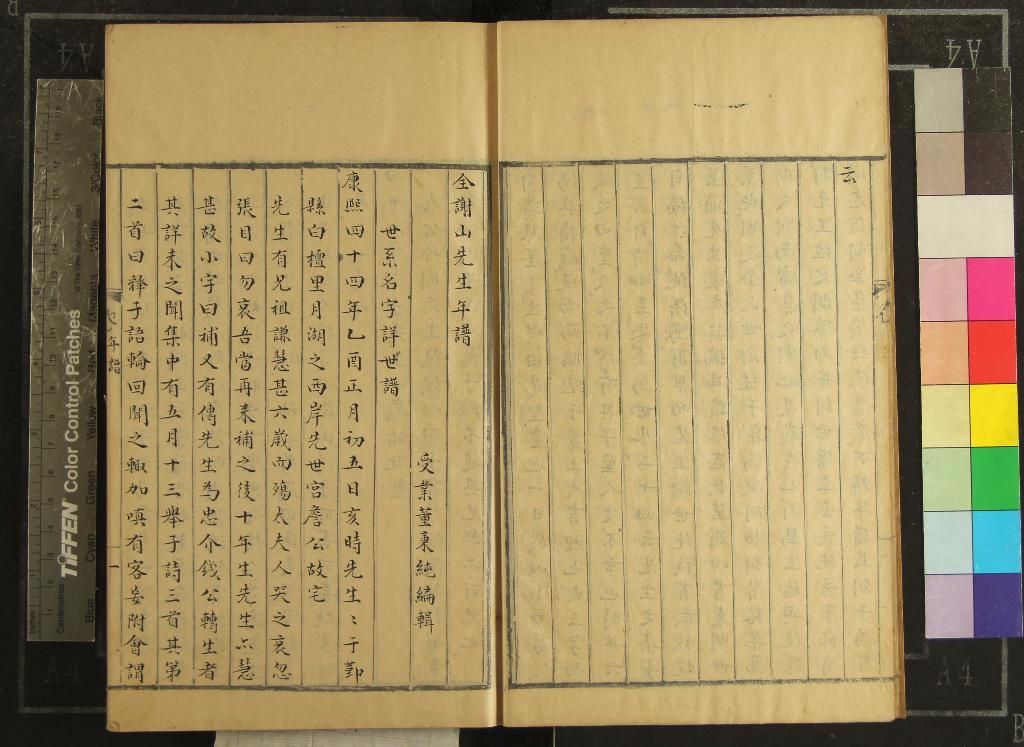 云
全謝山先生年譜
受業董秉純編輯
世系名字詳世譜
康熙四十四年乙酉正月初五日亥時先生〻于鄞
縣白檀里月湖之西岸先世宫詹公故宅
先生有兄祖謙慧甚六歲而殤太夫人哭之哀忽
張目曰勿哀吾當再来補之後十年生先生亦慧
甚故小字曰補又有傳先生為忠介錢公轉生者
其詳未之聞集中有五月十三舉子詩三首其第
二首曰釋子語輪回聞之輙加嗔有客妄附會謂
年譜
一
TIFFEN Color Control Patches
Blue
Cyan
Green
Yellow
Red
Magenta
White
3/Color
Black
Inches
Centimetres
A4
A4
A4
A4
B